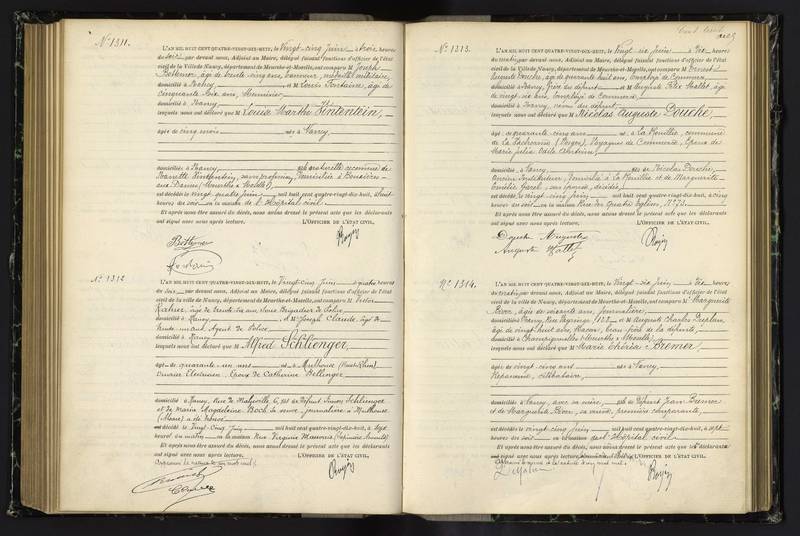 N° 1311.
L'AN MIL HUIT CENT QUATRE-VINGT-DIX-HUIT, le Vingt-cinq Juin à trois heures
du soir, par devant nous, Adjoint au Maire, délégué faisant fonctions d'officier de l'état
civil de la Ville de Nancy, département de Meurthe-et-Moselle, ont comparu M. Joseph
âgé de trente cinq ans, militaire,
domicilié à Nancy et M. Louis Fontaine, âgé de
Cinquante six ans, Menuisier,
domicilié à Nancy
lesquels nous ont déclaré que M Louise Marthe
âgée de cinq mois née à Nancy,
domiciliée à Nancy, fille naturelle reconnue de
sans profession, domiciliée à
(Meurthe & Moselle),
est décédée le Vingt quatre juin, mil huit cent quatre-vingt-dix-huit, à huit
heures du soir en la maison de l'Hôpital civil.
Et après nous être assuré du décès, nous avons dressé le présent acte que les déclarants
ont signé avec nous après lecture. L'OFFICIER DE L'ÉTAT CIVIL.
N° 1312
L'AN MIL HUIT CENT QUATRE-VINGT-DIX-HUIT, le Vingt-Cinq Juin à quatre heures
du soir, par devant nous, Adjoint au Maire, délégué faisant fonctions d'officier de l'état
civil de la ville de Nancy, département de Meurthe-et-Moselle, ont comparu M. Victor
âgé de trente six ans, Sous Brigadier de Police
domicilié à Nancy et M. Joseph Claude, âgé de
trente un ans Agent de Police
domicilié à Nancy
lesquels nous ont déclaré que M. Alfred Schlienger,
âgé de quarante un ans né à Mulhouse (Haut-Rhin)
Ouvrier Electricien Epoux de Catherine Bellinger
domicilié à Nancy, Rue de Malzéville, 6, fils de défunt Simon Schlienger
et de Maria Magdeleine Boch sa veuve, journalière à Mulhouse
(Alsace)
est décédé le Vingt Cinq Juin mil huit cent quatre-vingt-dix-huit, à sept
heures du matin en la maison Rue Virginie Mauvais
Et après nous être assuré du décès, nous avons dressé le présent acte que les déclarants
ont signé avec nous après lecture. L'OFFICIER DE L'ÉTAT CIVIL.
N° 1313.
L'AN MIL HUIT CENT QUATRE-VINGT-DIX-HUIT, le Vingt six Juin à Dix heures
du matin, par devant nous, Adjoint au Maire, délégué faisant fonctions d'officier de l'état
civil de la Ville de Nancy, département de Meurthe-et-Moselle, ont comparu M. Ernest
Auguste Douche, âgé de quarante huit ans, employé de Commerce,
domicilié à Nancy, frère du défunt et M. Auguste Félix Mallet, âgé
de vingt six ans, Employé de Commerce,
domicilié à Nancy, neveu du défunt
lesquels nous ont déclaré que M. Nicolas Auguste Douche,
âgé de quarante cinq ans né à La Houille, commune
de (Vosges), Voyageur de Commerce, Epoux de
Marie Julia Odile
domicilié à Nancy fils de Nicolas Douche,
ancien Instituteur, domicilié à La Houille et de Marguerite
Emélie Garel, son épouse, décédée,
est décédé le vingt cinq juin, mil huit cent quatre-vingt-dix-huit, à cinq
heures du soir en la maison Rue des Quatre Eglises, N° 73.
Et après nous être assuré du décès, nous avons dressé le présent acte que les déclarants
ont signé avec nous après lecture. L'OFFICIER DE L'ÉTAT CIVIL.
Douche Auguste
N° 1314.
L'AN MIL HUIT CENT QUATRE-VINGT-DIX-HUIT, le Vingt-six Juin à Dix heures
du matin, par devant nous, Adjoint au Maire, délégué faisant fonctions d'officier de l'état
civil de la ville de Nancy, département de Meurthe-et-Moselle, ont comparu M Marguerite
âgée de soixante ans, journalière,
domiciliée à Nancy, et M. Auguste Charles Duplan
âgé de vingt huit ans, Maçon, beau-frère de la défunte,
domicilié à Champigneulles (Meurthe & Moselle)
lesquels nous ont déclaré que M Marie Thérèse Bremer,
âgée de vingt cinq ans née à Nancy,
Repasseuse, célibataire,
domiciliée à Nancy, avec sa mère, fille de défunt Jean Bremer
et de Marguerite sa veuve, première comparante,
est décédée le vingt cinq juin mil huit cent quatre-vingt-dix-huit, à sept
heures du soir en la maison de l'Hôpital civil
Et après nous être assuré du décès, nous avons dressé le présent acte que le déclarant
a signé avec nous après lecture, L'OFFICIER DE L'ÉTAT CIVIL.
Duplan